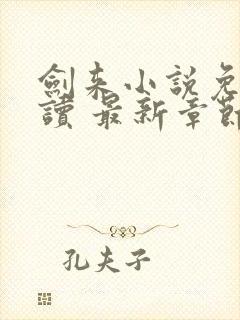 劍来小説免
讀 最新章節
孔夫子